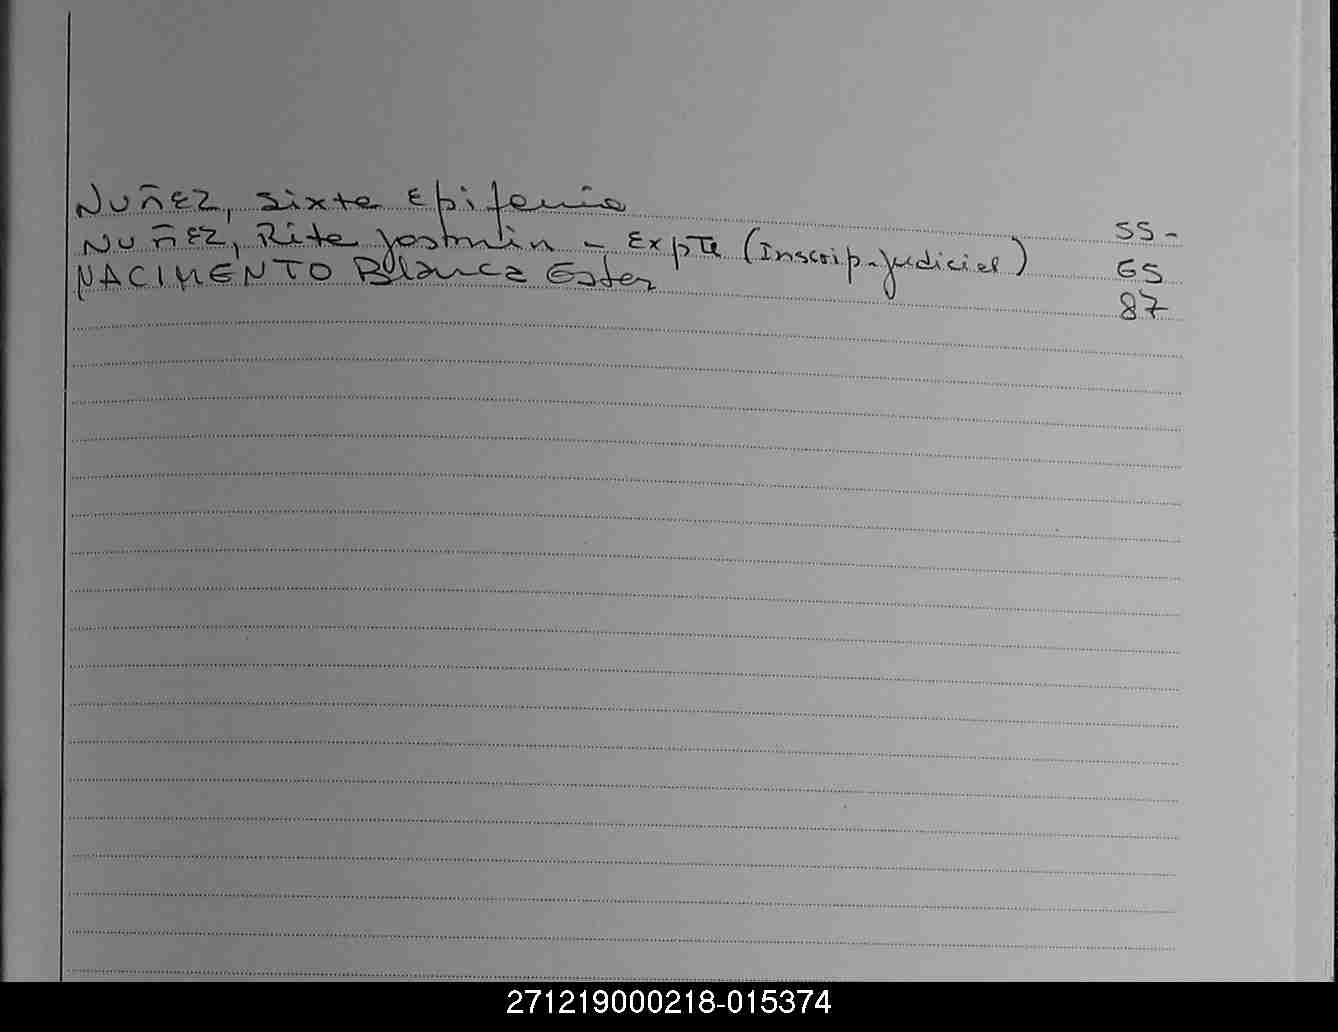 NUÑEZ, Sixta Epifania 55-
NUÑEZ, Rita Jasmin - Expte (Inscrip. Judicial) 65
NACIMENTO Blanca Ester 87
271219000218-015374